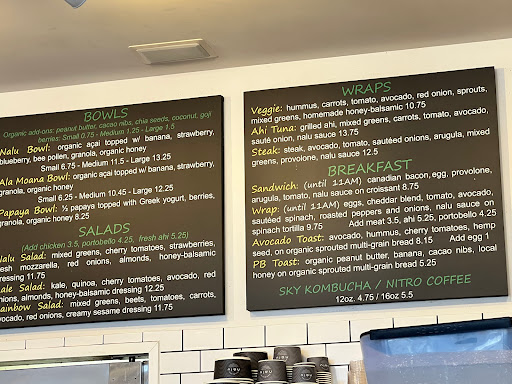 BOWLS
Organic add-ons: peanut butter, cacao nibs, chia seeds, coconut, goji
berries: Small 0.75 - Medium 1.25 - Large 1.5
Nalu Bowl: organic açai topped w/ banana, strawberry,
blueberry, bee pollen, granola, organic honey
Small 6.75 - Medium 11.5 - Large 13.25
Ala Moana Bowl: organic açai topped w/ banana, strawberry,
granola, organic honey
Small 6.25 - Medium 10.45 - Large 12.25
Papaya Bowl: ½ papaya topped with Greek yogurt, berries,
granola, organic honey 8.25
SALADS
(Add chicken 3.5, portobello 4.25, fresh ahi 5.25)
Nalu Salad: mixed greens, cherry tomatoes, strawberries,
fresh mozzarella, red onions, almonds, honey-balsamic
dressing 11.75
Kale Salad: kale, quinoa, cherry tomatoes, avocado, red
onions, almonds, honey-balsamic dressing 12.25
Rainbow Salad: mixed greens, beets, tomatoes, carrots,
avocado, red onions, creamy sesame dressing 11.75
WRAPS
Veggie: hummus, carrots, tomato, avocado, red onion, sprouts,
mixed greens, homemade honey-balsamic 10.75
Ahi Tuna: grilled ahi, mixed greens, carrots, tomato, avocado,
sauté onion, nalu sauce 13.75
Steak: steak, avocado, tomato, sautéed onions, arugula, mixed
greens, provolone, nalu sauce 12.5
BREAKFAST
Sandwich: (until 11AM) canadian bacon, egg, provolone,
arugula, tomato, nalu sauce on croissant 8.75
Wrap: (until 11AM) eggs, cheddar blend, tomato, avocado,
sautéed spinach, roasted peppers and onions, nalu sauce on
spinach tortilla 9.75 Add meat 3.5, ahi 5.25, portobello 4.25
Avocado Toast: avocado, hummus, cherry tomatoes, hemp
seed, on organic sprouted multi-grain bread 8.15 Add egg 1
PB Toast: organic peanut butter, banana, cacao nibs, local
honey on organic sprouted multi-grain bread 5.25
SKY KOMBUCHA / NITRO COFFEE
12oz. 4.75 / 16oz 5.5